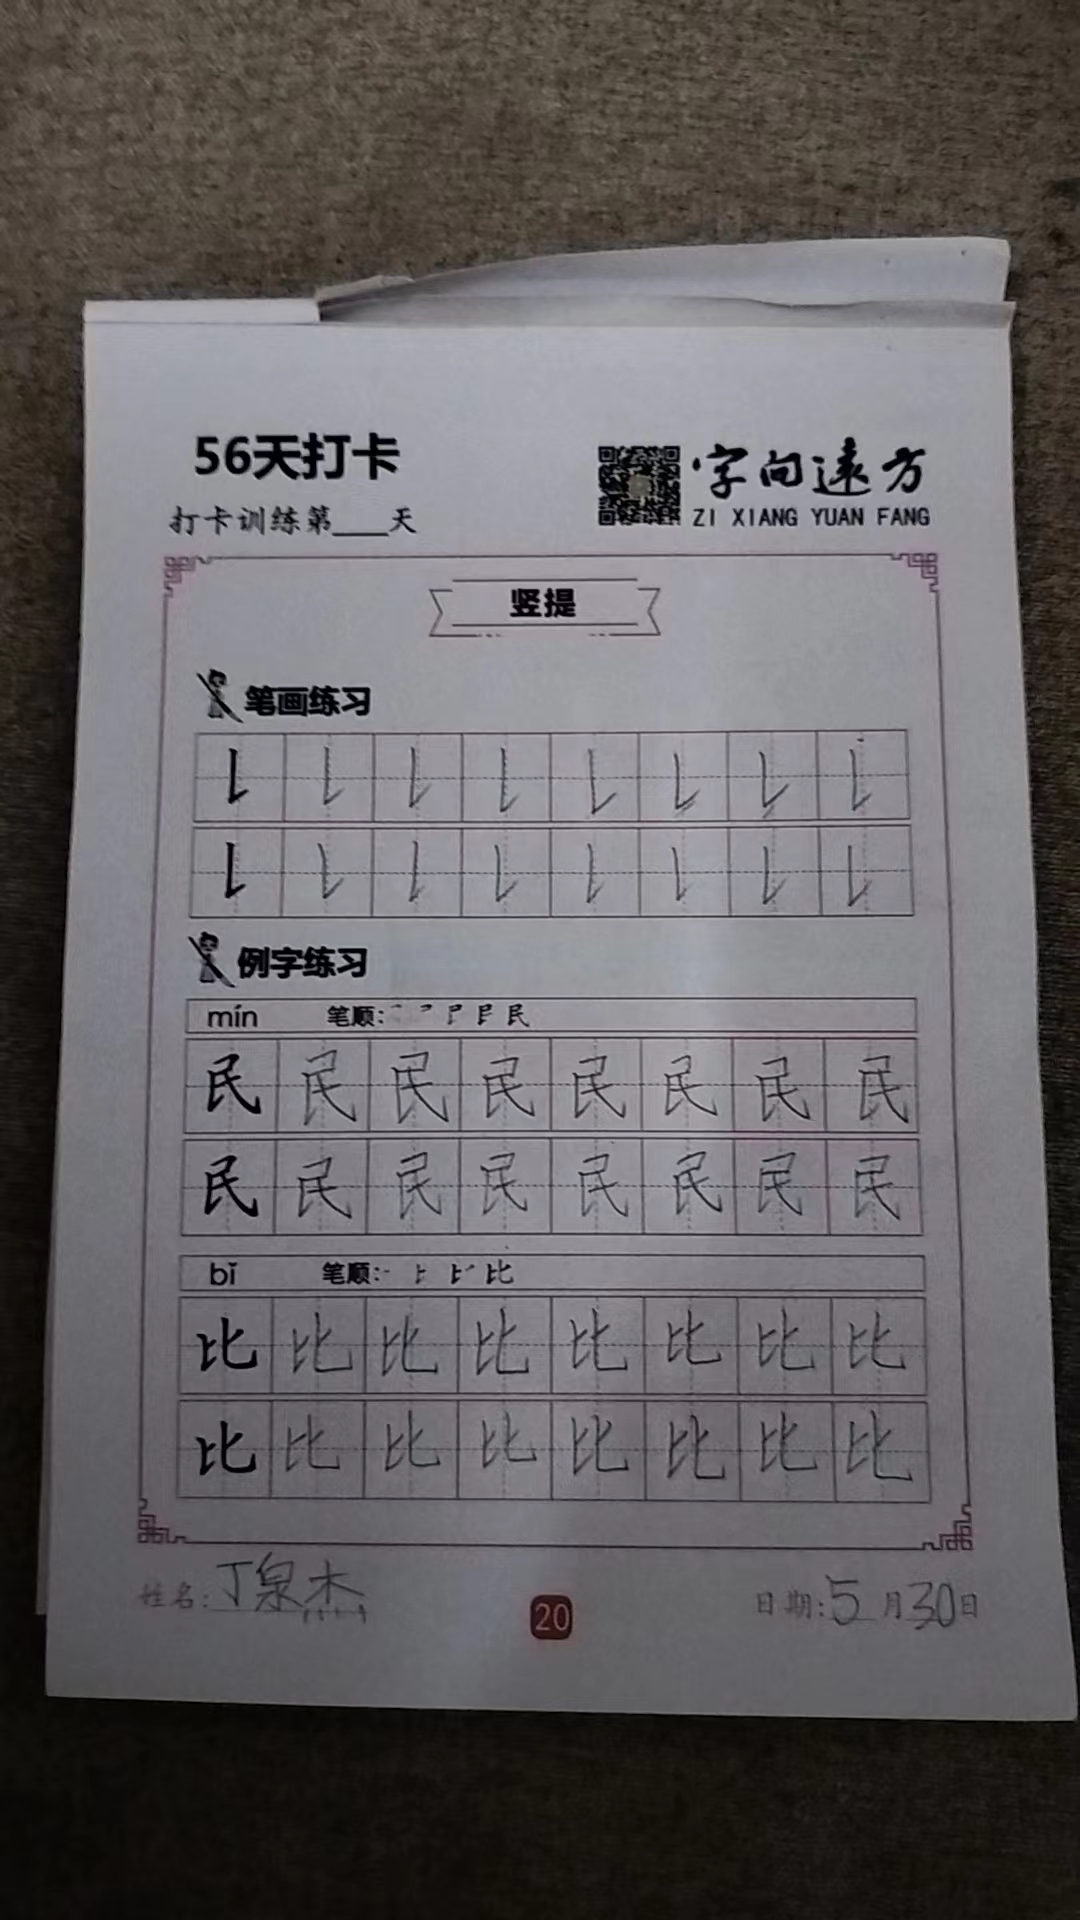 56天打卡
字向遠方
打卡训练第___天
ZI XIANG YUAN FANG
竖提
笔画练习
例字练习
mín 笔顺:
民 民 民 民 民 民 民 民
民 民 民 民 民 民 民 民
bǐ 笔顺:
比 比 比 比 比 比 比 比
比 比 比 比 比 比 比 比
姓名:丁泉杰 20 日期:5月30日